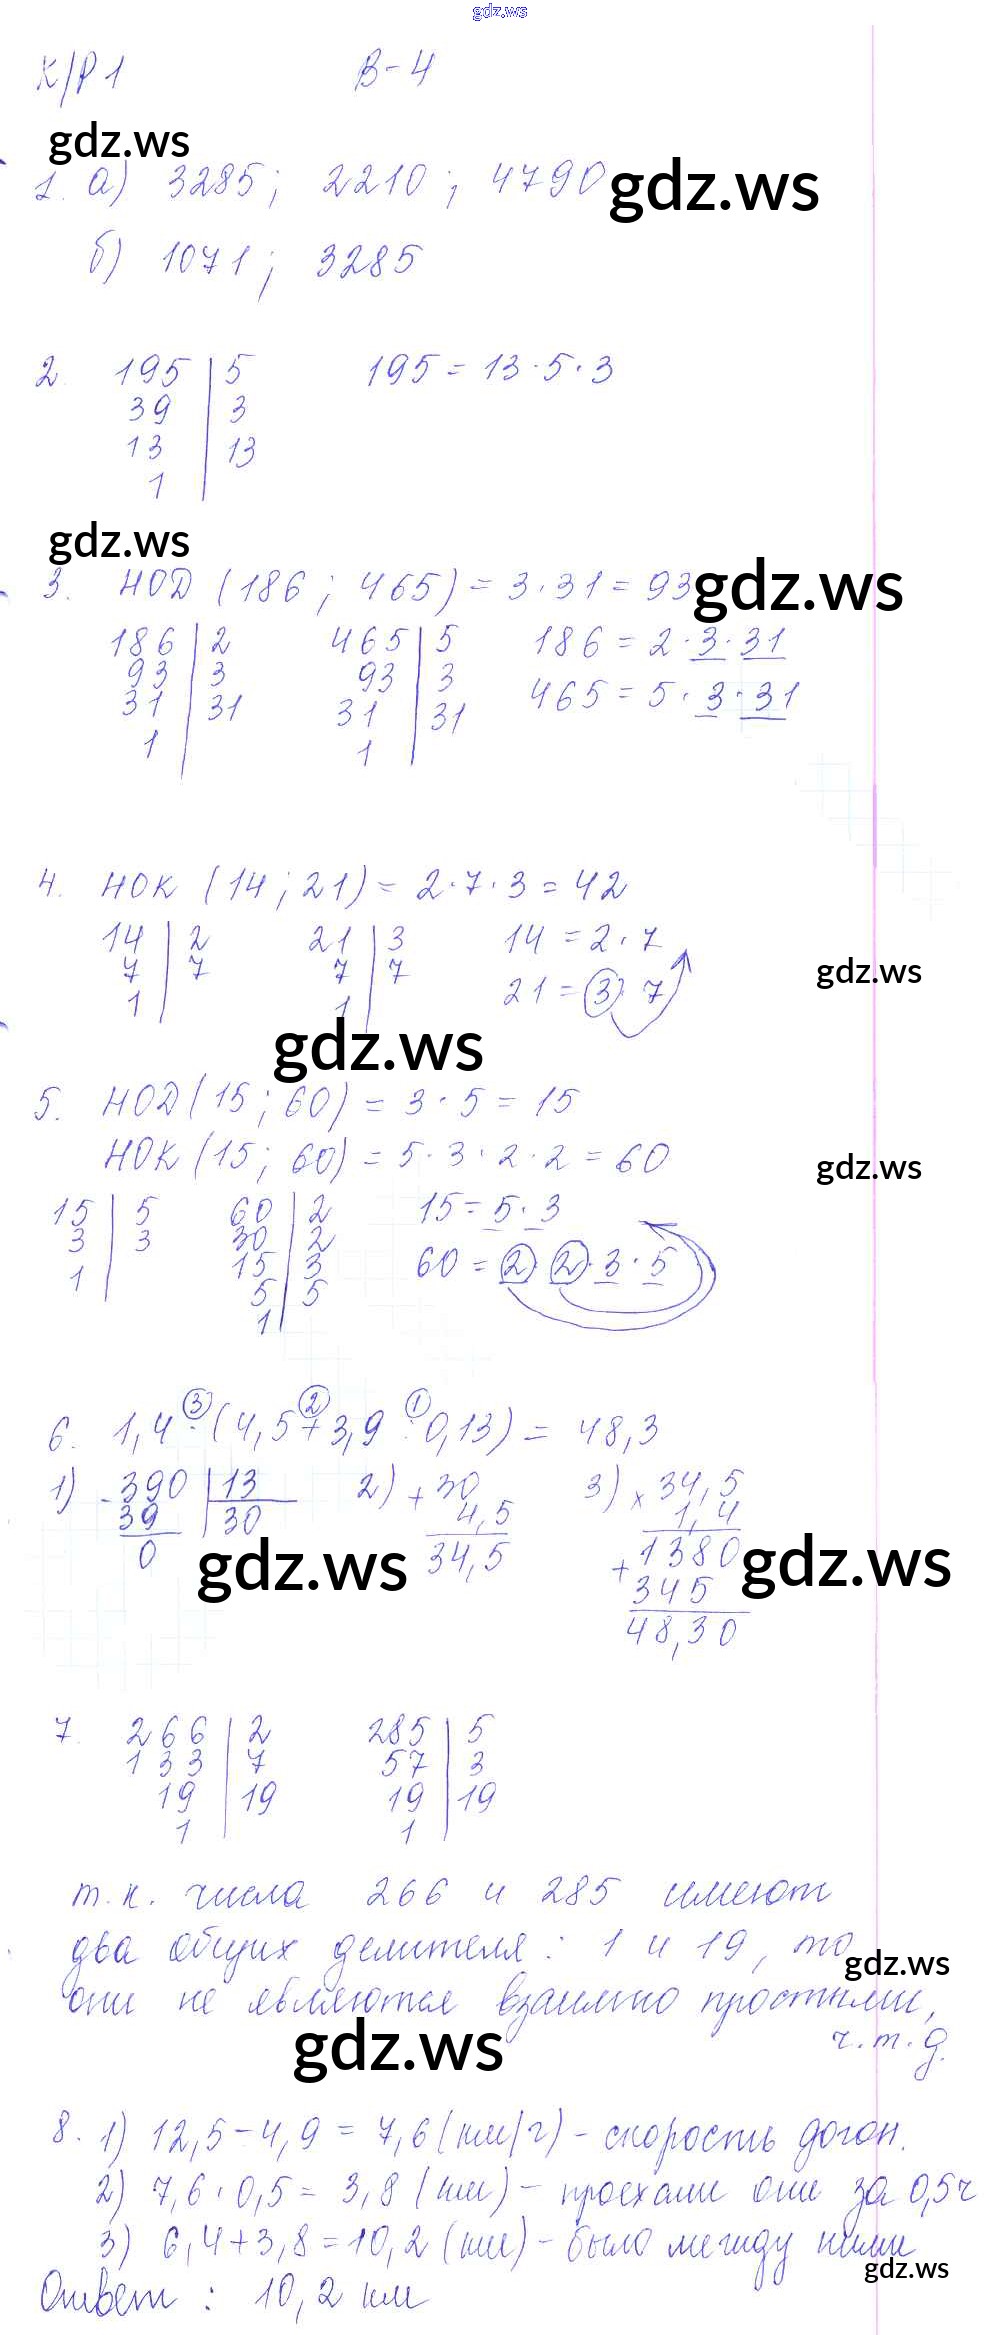 gdz.ws
К/Р 1 В-4
gdz.ws
1. а) 3285; 2210; 4790 gdz.ws
б) 1071; 3285
2. 195 | 5 195 = 13 · 5 · 3
39 | 3
13 | 13
1 |
gdz.ws
3. НОД (186; 465) = 3 · 31 = 93 gdz.ws
186 | 2 465 | 5 186 = 2 · 3 · 31
93 | 3 93 | 3 465 = 5 · 3 · 31
31 | 31 31 | 31
1 | 1 |
4. НОК (14; 21) = 2 · 7 · 3 = 42
14 | 2 21 | 3 14 = 2 · 7
7 | 7 7 | 7 21 = 3 · 7
1 | 1 |
gdz.ws
gdz.ws
5. НОД (15; 60) = 3 · 5 = 15
НОК (15; 60) = 5 · 3 · 2 · 2 = 60
gdz.ws
15 | 5 60 | 2 15 = 5 · 3
3 | 3 30 | 2 60 = 2 · 2 · 3 · 5
1 | 15 | 3
5 | 5
1 |
3 2 1
6. 1,4 · (4,5 + 3,9 : 0,13) = 48,3
1) - 390 | 13 2) + 30 3) × 34,5
39 | 30 4,5 1,4
0 34,5 + 1380
345
48,30
gdz.ws gdz.ws
7. 266 | 2 285 | 5
133 | 7 57 | 3
19 | 19 19 | 19
1 | 1 |
т.к. числа 266 и 285 имеют
два общих делителя: 1 и 19, то
gdz.ws
они не являются взаимно простыми,
ч.т.д.
gdz.ws
8. 1) 12,5 - 4,9 = 7,6 (км/ч) - скорость догон.
2) 7,6 · 0,5 = 3,8 (км) - проехали они за 0,5ч
3) 6,4 + 3,8 = 10,2 (км) - было между ними
gdz.ws
Ответ: 10,2 км